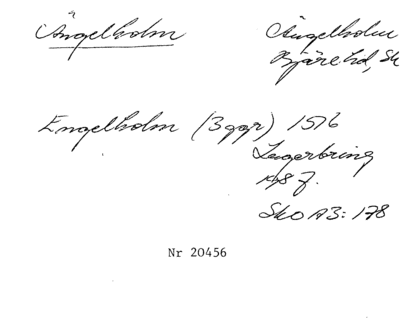 Ängelholm Ängelholm
Bjäre hd, Sk
Engelholm (3 ggr) 1576
Lagerbring
Sko A3: 178
Nr 20456